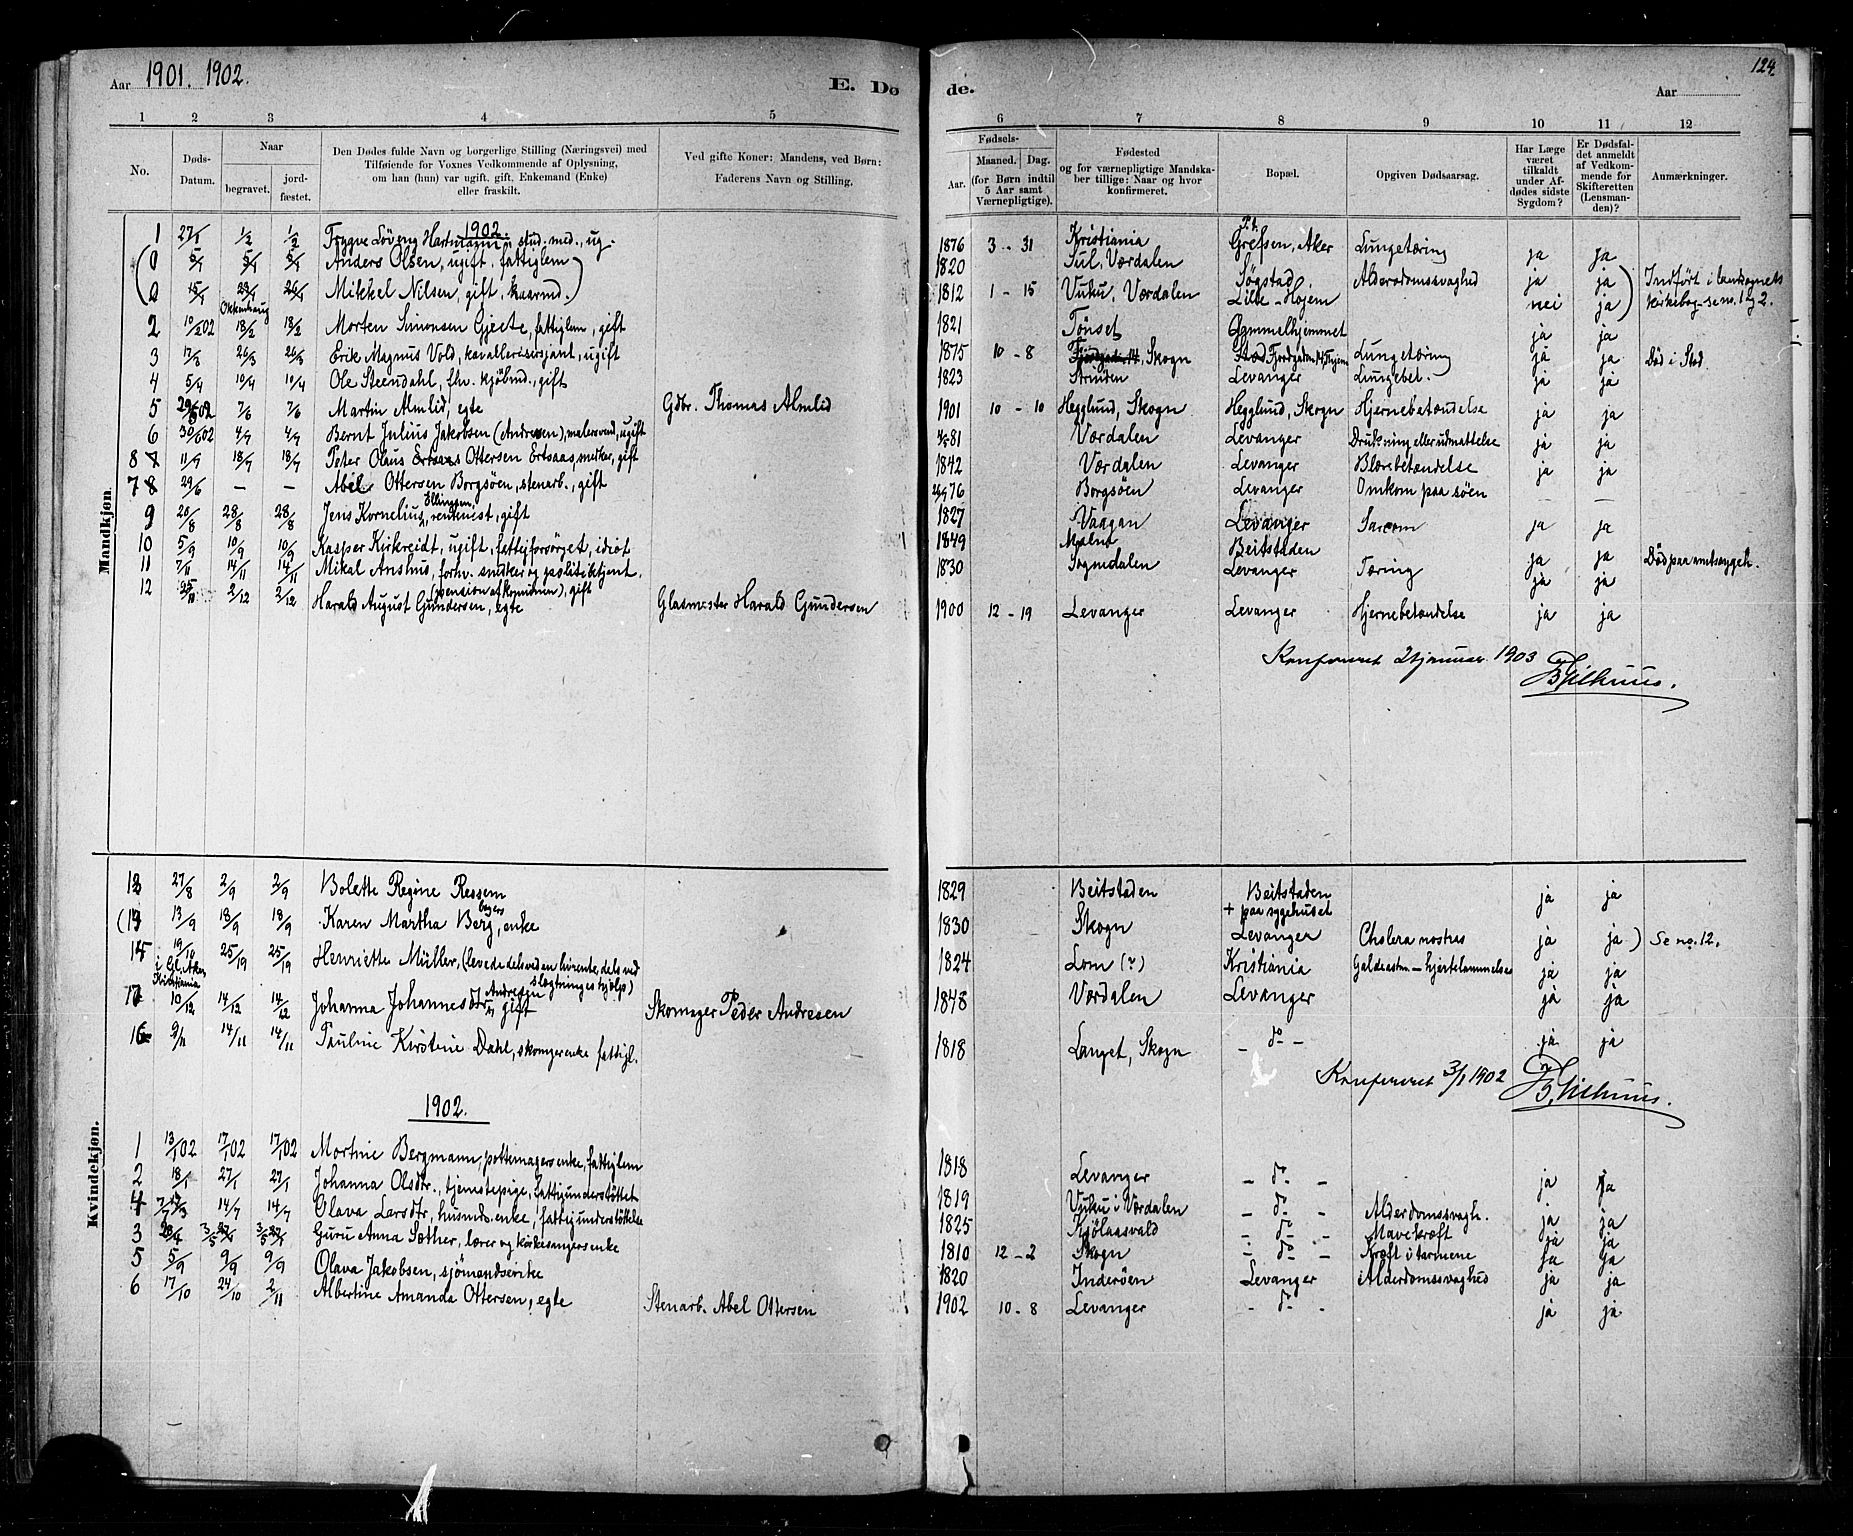 Aar 1901. 1902.
E. Dø
de.
Aar
124.
1 2 3 4 5 6 7 8 9 10 11 12
No.
Døds-Datum.
Naar
begravet.
jord-fæstet.
Den Dødes fulde Navn og borgerlige Stilling (Næringsvei) med
Tilføiende for Voxnes Vedkommende af Oplysning,
om han (hun) var ugift, gift, Enkemand (Enke)
eller fraskilt.
Ved gifte Koner: Mandens, ved Børn:
Faderens Navn og Stilling.
Fødsels-
Aar.
Maaned. Dag.
(for Børn indtil
5 Aar samt
Værnepligtige).
Fødested
og for værnepligtige Mandska-
ber tillige: Naar og hvor
konfirmeret.
Bopæl.
Opgiven Dødsaarsag.
Har Læge
været
tilkaldt
under Af-
dødes sidste
Sygdom?
Er Dødsfal-
det anmeldt
af Vedkom-
mende for
Skifteretten
(Lensman-
den)?
Anmærkninger.
Mandkjøn.
1902.
1 27/1 1/2 1/2 Trygve Løveng Hartmann, stud. med., ug. 1876 3 - 31 Kristiania P.t. Grefsen, Aker Lungetæring ja ja
5/1 5/1 Anders Olsen, ugift, fattiglem 1820 Sul, Værdalen Søgstad Alderdomssvaghed ja ja
15/1 26/1 Mikkel Nilsen, gift, kaarmd. 1812 1 - 15 Vuku, Værdalen Lille-Hojem nei ja Indført i landsognets kirkebog se no. 1 og 2.
2 10/2 02 18/2 18/2 Morten Simonsen Gjeete, fattiglem, gift 1821 Tønset Gammelhjemmet ja ja
3 17/3 26/3 26/3 Erik Magnus Vold, kavallerisersjant, ugift 1875 10 - 8 Skogn Lungetæring ja ja Død i Stod
4 5/4 10/4 10/4 Ole Steendahl, fhv. kjøbmd., gift 1823 Strinden Levanger Lungebet. ja ja
5 29/5 02 7/6 7/6 Martin Almlid, egte Gdbr. Thomas Almlid 1901 10 - 10 Hegglund, Skogn Hegglund, Skogn Hjernebetændelse ja ja
6 30/6 02 4/7 4/7 Bernt Julius Jakobsen (Andresen), malersvend, ugift 81 Værdalen Levanger Drukning eller udmattelse ja ja
8 11/7 18/7 18/7 Peter Olaus Ottersen Ertsaas, snedker, gift 1842 Værdalen Levanger Blærebetændelse ja ja
7 29/6 - - Abel Ottersen Borgsøen, stenarb., gift 76 Borgsøen Levanger Omkom paa søen - -
9 20/8 28/8 28/8 Jens Kornelius Ellingsen, gift 1827 Vaagan Levanger Sarcom ja ja
10 5/9 10/9 10/9 Kasper Kirkreidt, ugift, fattigforsørget, idiot 1849 Malm Beitstaden ja ja Død paa amtssygeh.
11 7/11 14/11 14/11 Mikal Aushus, forhv. snedker og politibetjent, (pension af kommunen), gift 1830 Sogndalen Levanger Tæring ja ja
12 25/10 2/12 2/12 Harald August Gundersen, egte Glasmester Harald Gundersen 1900 12 - 19 Levanger Levanger Hjernebetændelse ja ja
Konfereret 2 januar 1903
Kvindekjøn.
27/8 2/9 2/9 Bolette Regine Ressem 1829 Beitstaden Beitstaden + paa sygehuset ja ja
13/9 18/9 18/9 Karen Martha Berg, enke 1830 Skogn Levanger Cholera nostras ja ja) Se no. 12.
19/10 25/19 25/19 Henriette Müller, (levede dels ved en livrente, dels ved slægtninges hjælp) 1824 Lom (?) Kristiania Galdeastm - hjertelammelse ja ja
i Gl. Aker Kristiania
17 10/12 14/12 14/12 Johanna Johannesdtr. Andresen, gift Skomager Peder Andresen 1848 Værdalen Levanger ja ja
16 9/11 14/11 14/11 Pauline Kirstine Dahl, skomgerenke fattigl. 1818 Langet, Skogn - do - ja ja
Konfereret 3/1 1902
1902.
1 13/1 02 17/1 02 17/1 02 Martine Bergmann, pottemagerenke, fattiglem 1818 Levanger - do - ja ja
2 18/1 27/1 27/1 Johanna Olsdtr., tjenestepige, fattigunderstøttet 1819 Vuku i Værdalen - do - Alderdomssvagh. ja ja
4 14/7 14/7 Olava Larsdtr, husmds. enke, fattigunderstøttelse 1825 Kjølaasvald - do - Mavekræft ja ja
3 3/5 3/5 Guru Anna Sæther, lærer og kirkesangers enke 1810 12 - 2 Skogn - do - Kræft i tarmene ja ja
5 5/9 9/9 9/9 Olava Jakobsen, sjømandsenke 1820 Inderøen Levanger Alderdomssvaghed ja ja
6 17/10 24/10 2/11 Albertine Amanda Ottersen, egte Stenarb. Abel Ottersen 1902 10 - 8 Levanger - do - ja ja